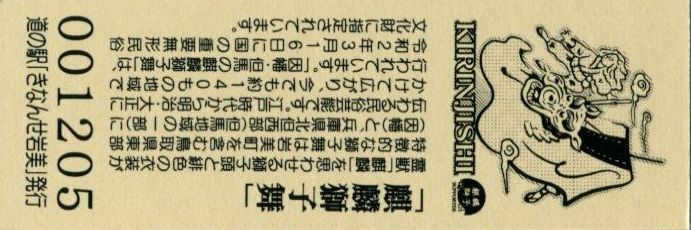 KIRINJISHI
「麒麟獅子舞」
霊獣「麒麟」を思わせる獅子頭と緋色の衣装が
特徴的な獅子舞は岩美町を含む鳥取県東部
(因幡)と、兵庫県北但西部(但馬地域の一部)に
伝わる民俗芸能です。江戸時代から明治・大正に
かけて広がり、今でも約140もの地域で
行われています。“因幡・但馬の麒麟獅子舞”は、
令和2年3月16日に国の重要無形民俗
文化財に指定されています。
001205
道の駅「きなんせ岩美」発行